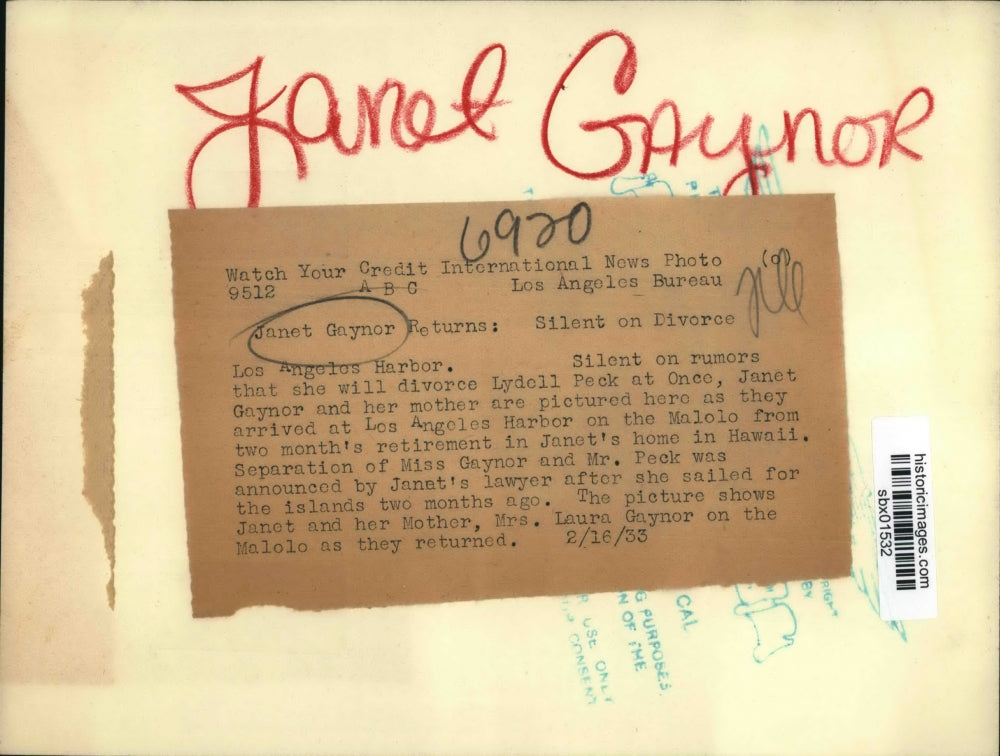 Janet Gaynor
6920
Watch Your Credit International News Photo (o)
9512 A B C Los Angeles Bureau
Janet Gaynor Returns: Silent on Divorce
Los Angeles Harbor. Silent on rumors
that she will divorce Lydell Peck at Once, Janet
Gaynor and her mother are pictured here as they
arrived at Los Angeles Harbor on the Malolo from
two month's retirement in Janet's home in Hawaii.
Separation of Miss Gaynor and Mr. Peck was
announced by Janat's lawyer after she sailed for
the islands two months ago. The picture shows
Janet and her Mother, Mrs. Laura Gaynor on the
Malolo as they returned. 2/16/33
historicimages.com
sbx01532
CAL
G PURPOSES.
N OF THE
R USE ONLY
CONSENT
BY